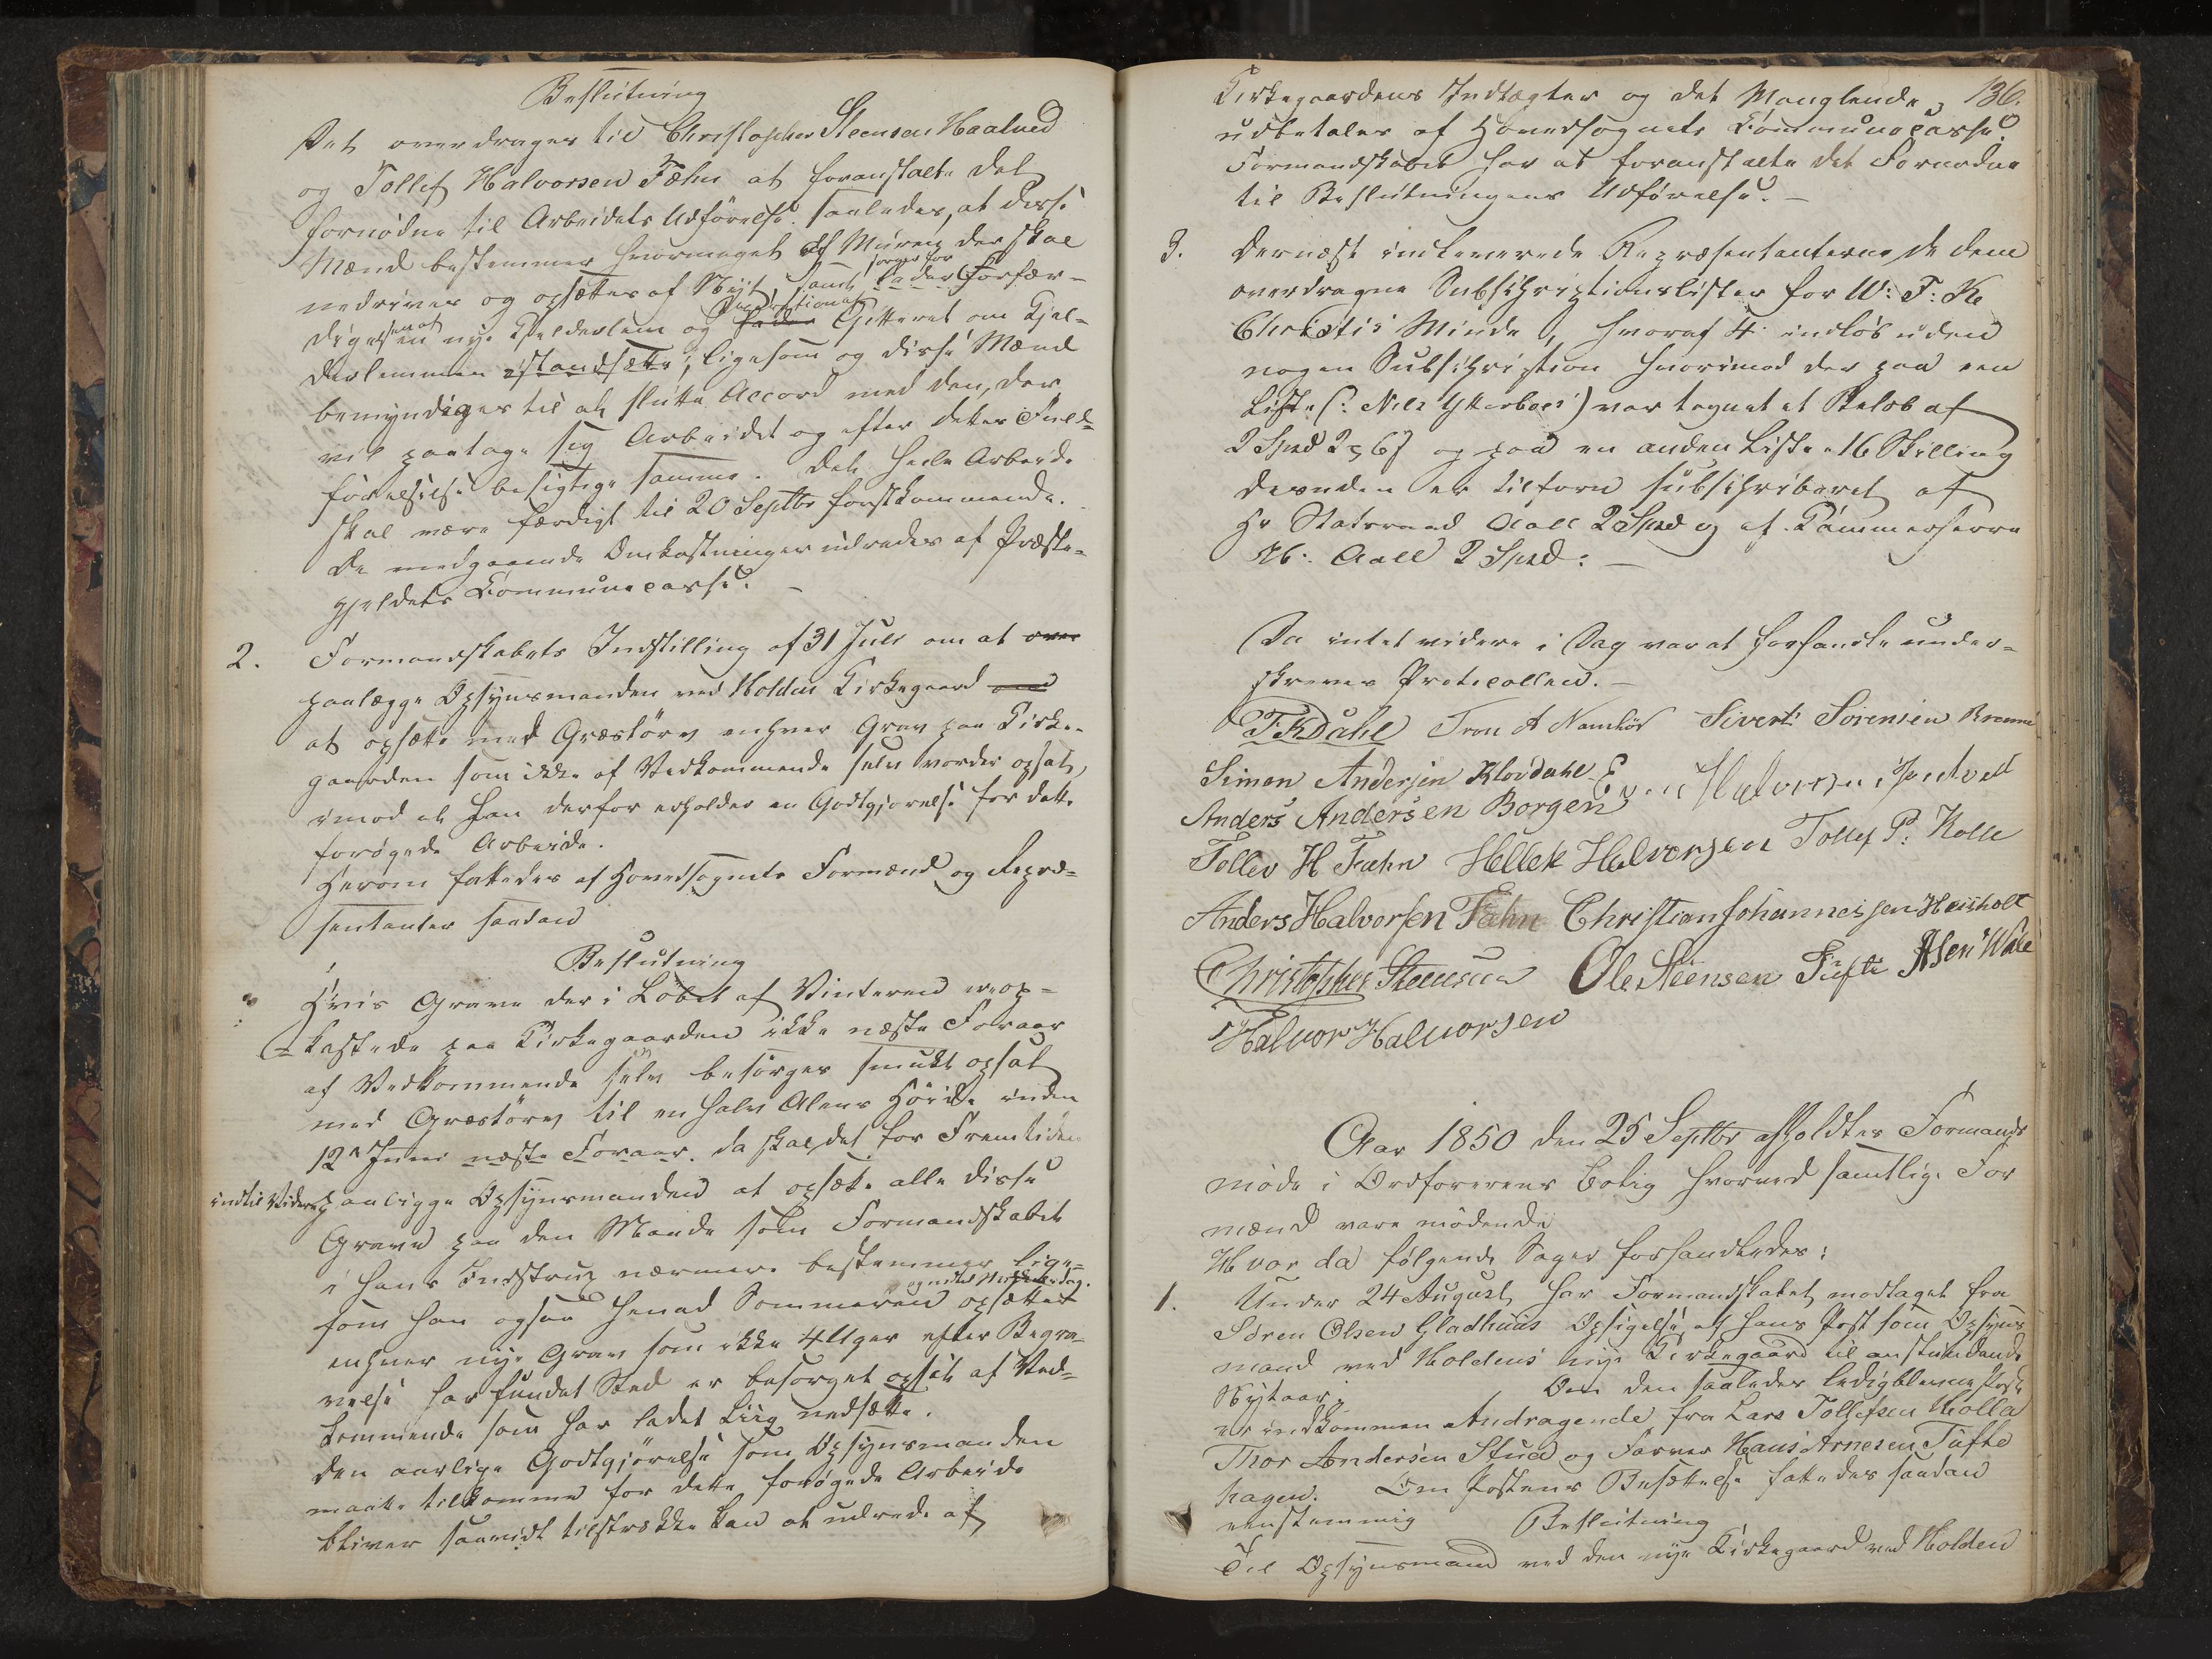 Beslutning
Det overdrages til Christopher Steensen Haatved
og Tollef Halvorsen Fæhn at foranstalte det
fornødne til Arbeidets Udførelse saaledes, at disse
Mænd bestemmer hvormeget af Muren der skal
nedrives og opsættes af Nyt, samt lader sørges for Forfær-
digelsen af nye Kjelderlem og Gitteret om Kjel-
derlemmen istandsætte, ligesom og disse Mænd
bemyndiges til at slutte Accord med den, der
vil paatage sig Arbeidet og efter dettes Fuld-
førelse besigtige samme. Det hele Arbeide
skal være færdigt til 20 Septbr førstkommende.
De medgaaende Omkostninger udredes af Præste-
gjeldets Kommunecasse. –
2. Formandskabets Indstilling af 31 Juli om at over
paalægge Opsynsmanden ved Holden Kirkegaard
at opsætte med Græstørv enhver Grav paa Kirke-
gaarden som ikke af Vedkommende selv vorder opsat,
imod at han derfor erholder en Godtgjørelse for dette
forøgede Arbeide.
Herom fattedes af Hovedsognets Formænd og Repræ-
sentanter saadan
Beslutning
Hvis Grave der i Løbet af Vinteren ere op-
kastede paa Kirkegaarden ikke næste Foraar
af Vedkommende selv besørges smukt opsat
med Græstørv til en halv Alens Høide inden
12te Juni næste Foraar, da skal det for Fremtiden
indtil Videre paaligge Opsynsmanden at opsætte alle disse
Grave paa den Maade som Formandskabet
i hans Instrux nærmere bestemmer lige-
som han ogsaa henad Sommeren opsætter
enhver nye Grav som ikke 4 Uger efter Begra-
velse har fundet Sted er besørget opsat af Ved-
kommende som har ladet Liig nedsætte.
Den aarlige Godtgjørelse som Opsynsmanden
maatte tilkomme for dette forøgede Arbeide
bliver saavidt tilstrække kan at udrede af
136.
Kirkegaardens Indtægter og det Manglende
udbetales af Hovedsognets Kommunecasse.
Formandskabet har at foranstalte det Fornødne
til Beslutningens Udførelse. –
3. Dernæst indleverede Repræsentanterne de dem
overdragne Subskriptionslister for W: F: K:
Christies Minde, hvoraf 4 indløb uden
nogen Subskription hvorimod der paa een
Liste (: Nils Ytterbøes) var tegnet et Beløb af
2 Spd 2 # 6 ß og paa en anden Liste 16 Skilling
desuden er tilforn subskriberet af
Hr Statsraad Aall 2 Spd og af Kammerherre
N: Aall 2 Spd: –
Da intet videre i Dag var at forhandle under-
skreves Protocollen. –
T. K. Dahl Tron A Namløs Sivert Sørensen
Simon Andersen Klovdahl Even Halvorsen
Anders Andersen Borgen
Tollev H Fæhn Hellek Halvorsen Tollef P: Kolle
Anders Halvorsen Fæhn Christian Johannesen Heisholt
Christopher Steensen Ole Steensen Tufte
Halvor Halvorsen
Aar 1850 den 25 Septbr afholdtes Formands
møde i Ordførerens Bolig hvorved samtlige For
mænd vare mødende
Hvor da følgende Sager forhandledes:
1. Under 24 August har Formandskabet modtaget fra
Søren Olsen Gladhuus Opsigelse af hans Post som Opsyns
mand ved Holdens nye Kirkegaard til anstundende
Nytaar. Om den saaledes ledigblevne Post
er indkommen Andragende fra Lars Tollefsen Holla
Thor Andersen Stued og Farver Hans Arnesen Tufte
hagen. Om Postens Besættelse fattedes saadan
eenstemmig Beslutning
Til Opsynsmand ved den nye Kirkegaard ved Holden